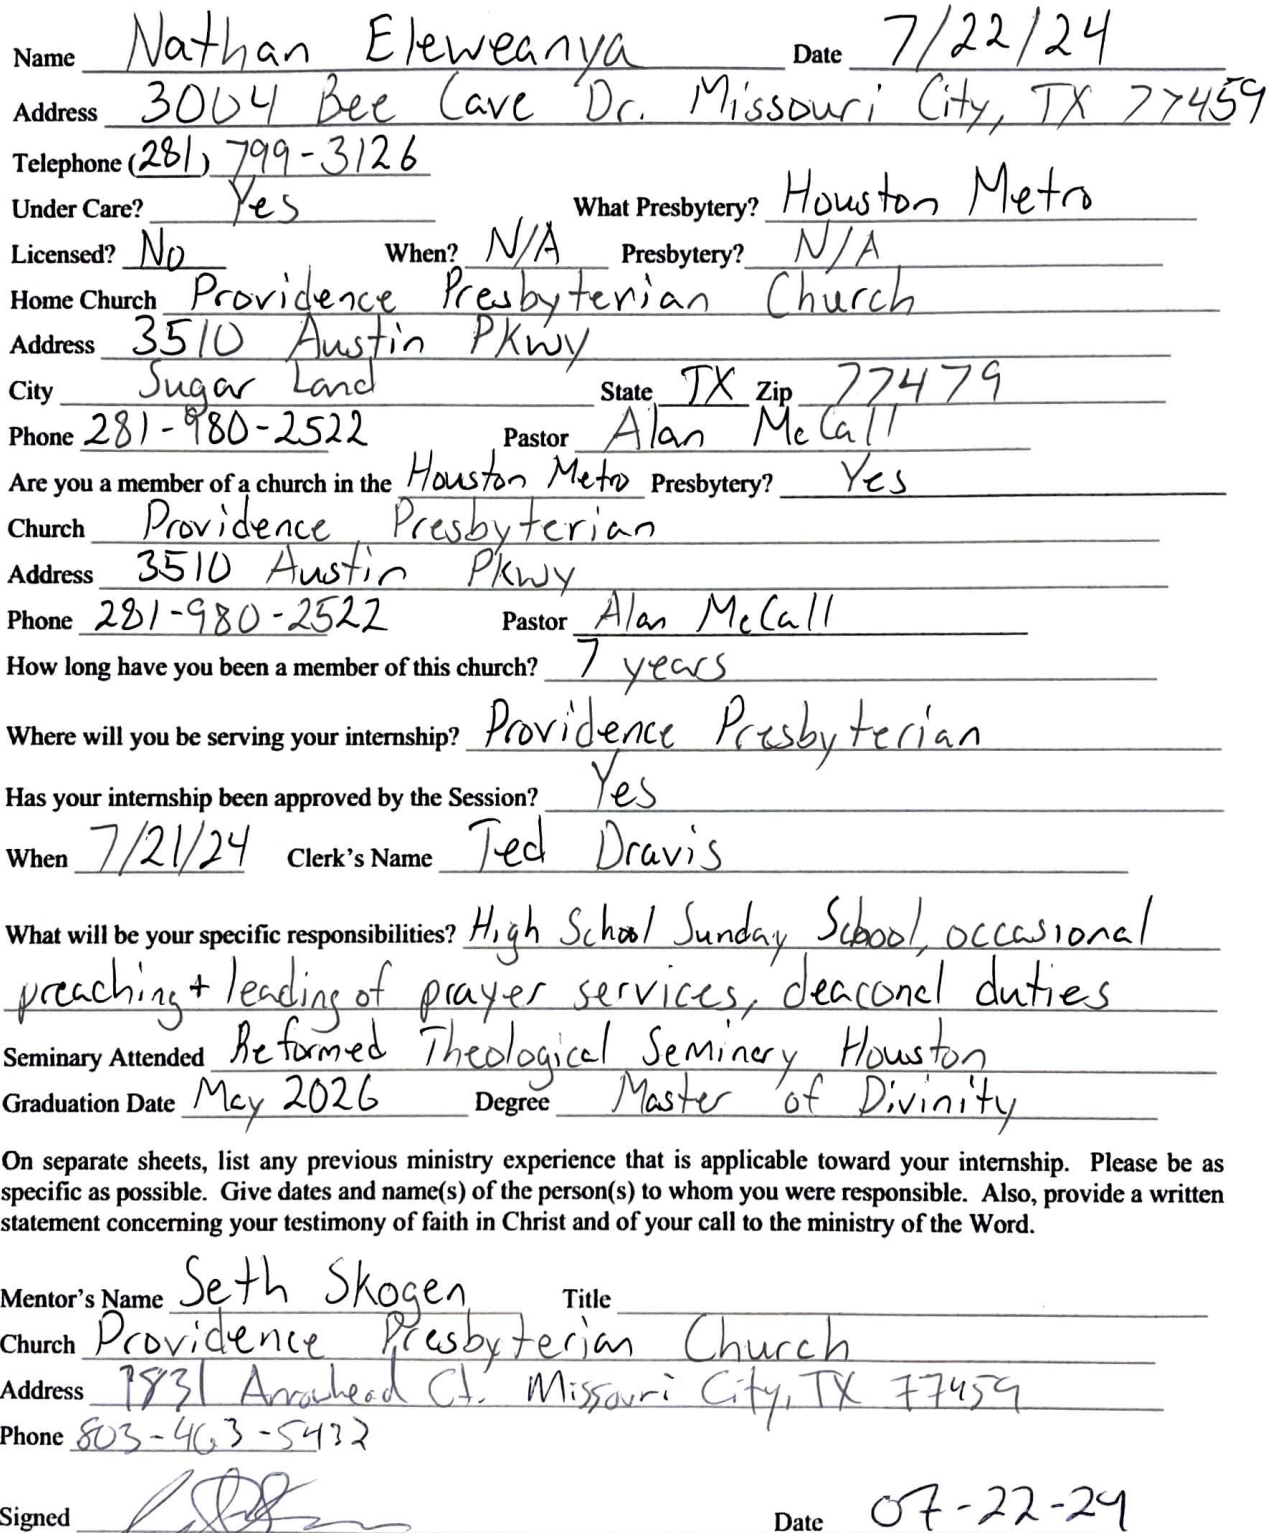 Name Nathan Eleweanya Date 7/22/24
Address 3004 Bee Cave Dr. Missouri City, TX 77459
Telephone (281) 799-3126
Under Care? Yes What Presbytery? Houston Metro
Licensed? No When? N/A Presbytery? N/A
Home Church Providence Presbyterian Church
Address 3510 Austin PKwy
City Sugar Land State TX Zip 77479
Phone 281-980-2522 Pastor Alan McCall
Are you a member of a church in the Houston Metro Presbytery? Yes
Church Providence Presbyterian
Address 3510 Austin PKwy
Phone 281-980-2522 Pastor Alan McCall
How long have you been a member of this church? 7 years
Where will you be serving your internship? Providence Presbyterian
Has your internship been approved by the Session? Yes
When 7/21/24 Clerk's Name Ted Dravis
What will be your specific responsibilities? High School Sunday School, occasional
preaching + leading of prayer services, deaconal duties
Seminary Attended Reformed Theological Seminary Houston
Graduation Date May 2026 Degree Master of Divinity
On separate sheets, list any previous ministry experience that is applicable toward your internship. Please be as
specific as possible. Give dates and name(s) of the person(s) to whom you were responsible. Also, provide a written
statement concerning your testimony of faith in Christ and of your call to the ministry of the Word.
Mentor's Name Seth Skogen Title
Church Providence Presbyterian Church
Address 1831 Arrowhead Ct. Missouri City, TX 77459
Phone 803-463-5432
Signed Date 07-22-24